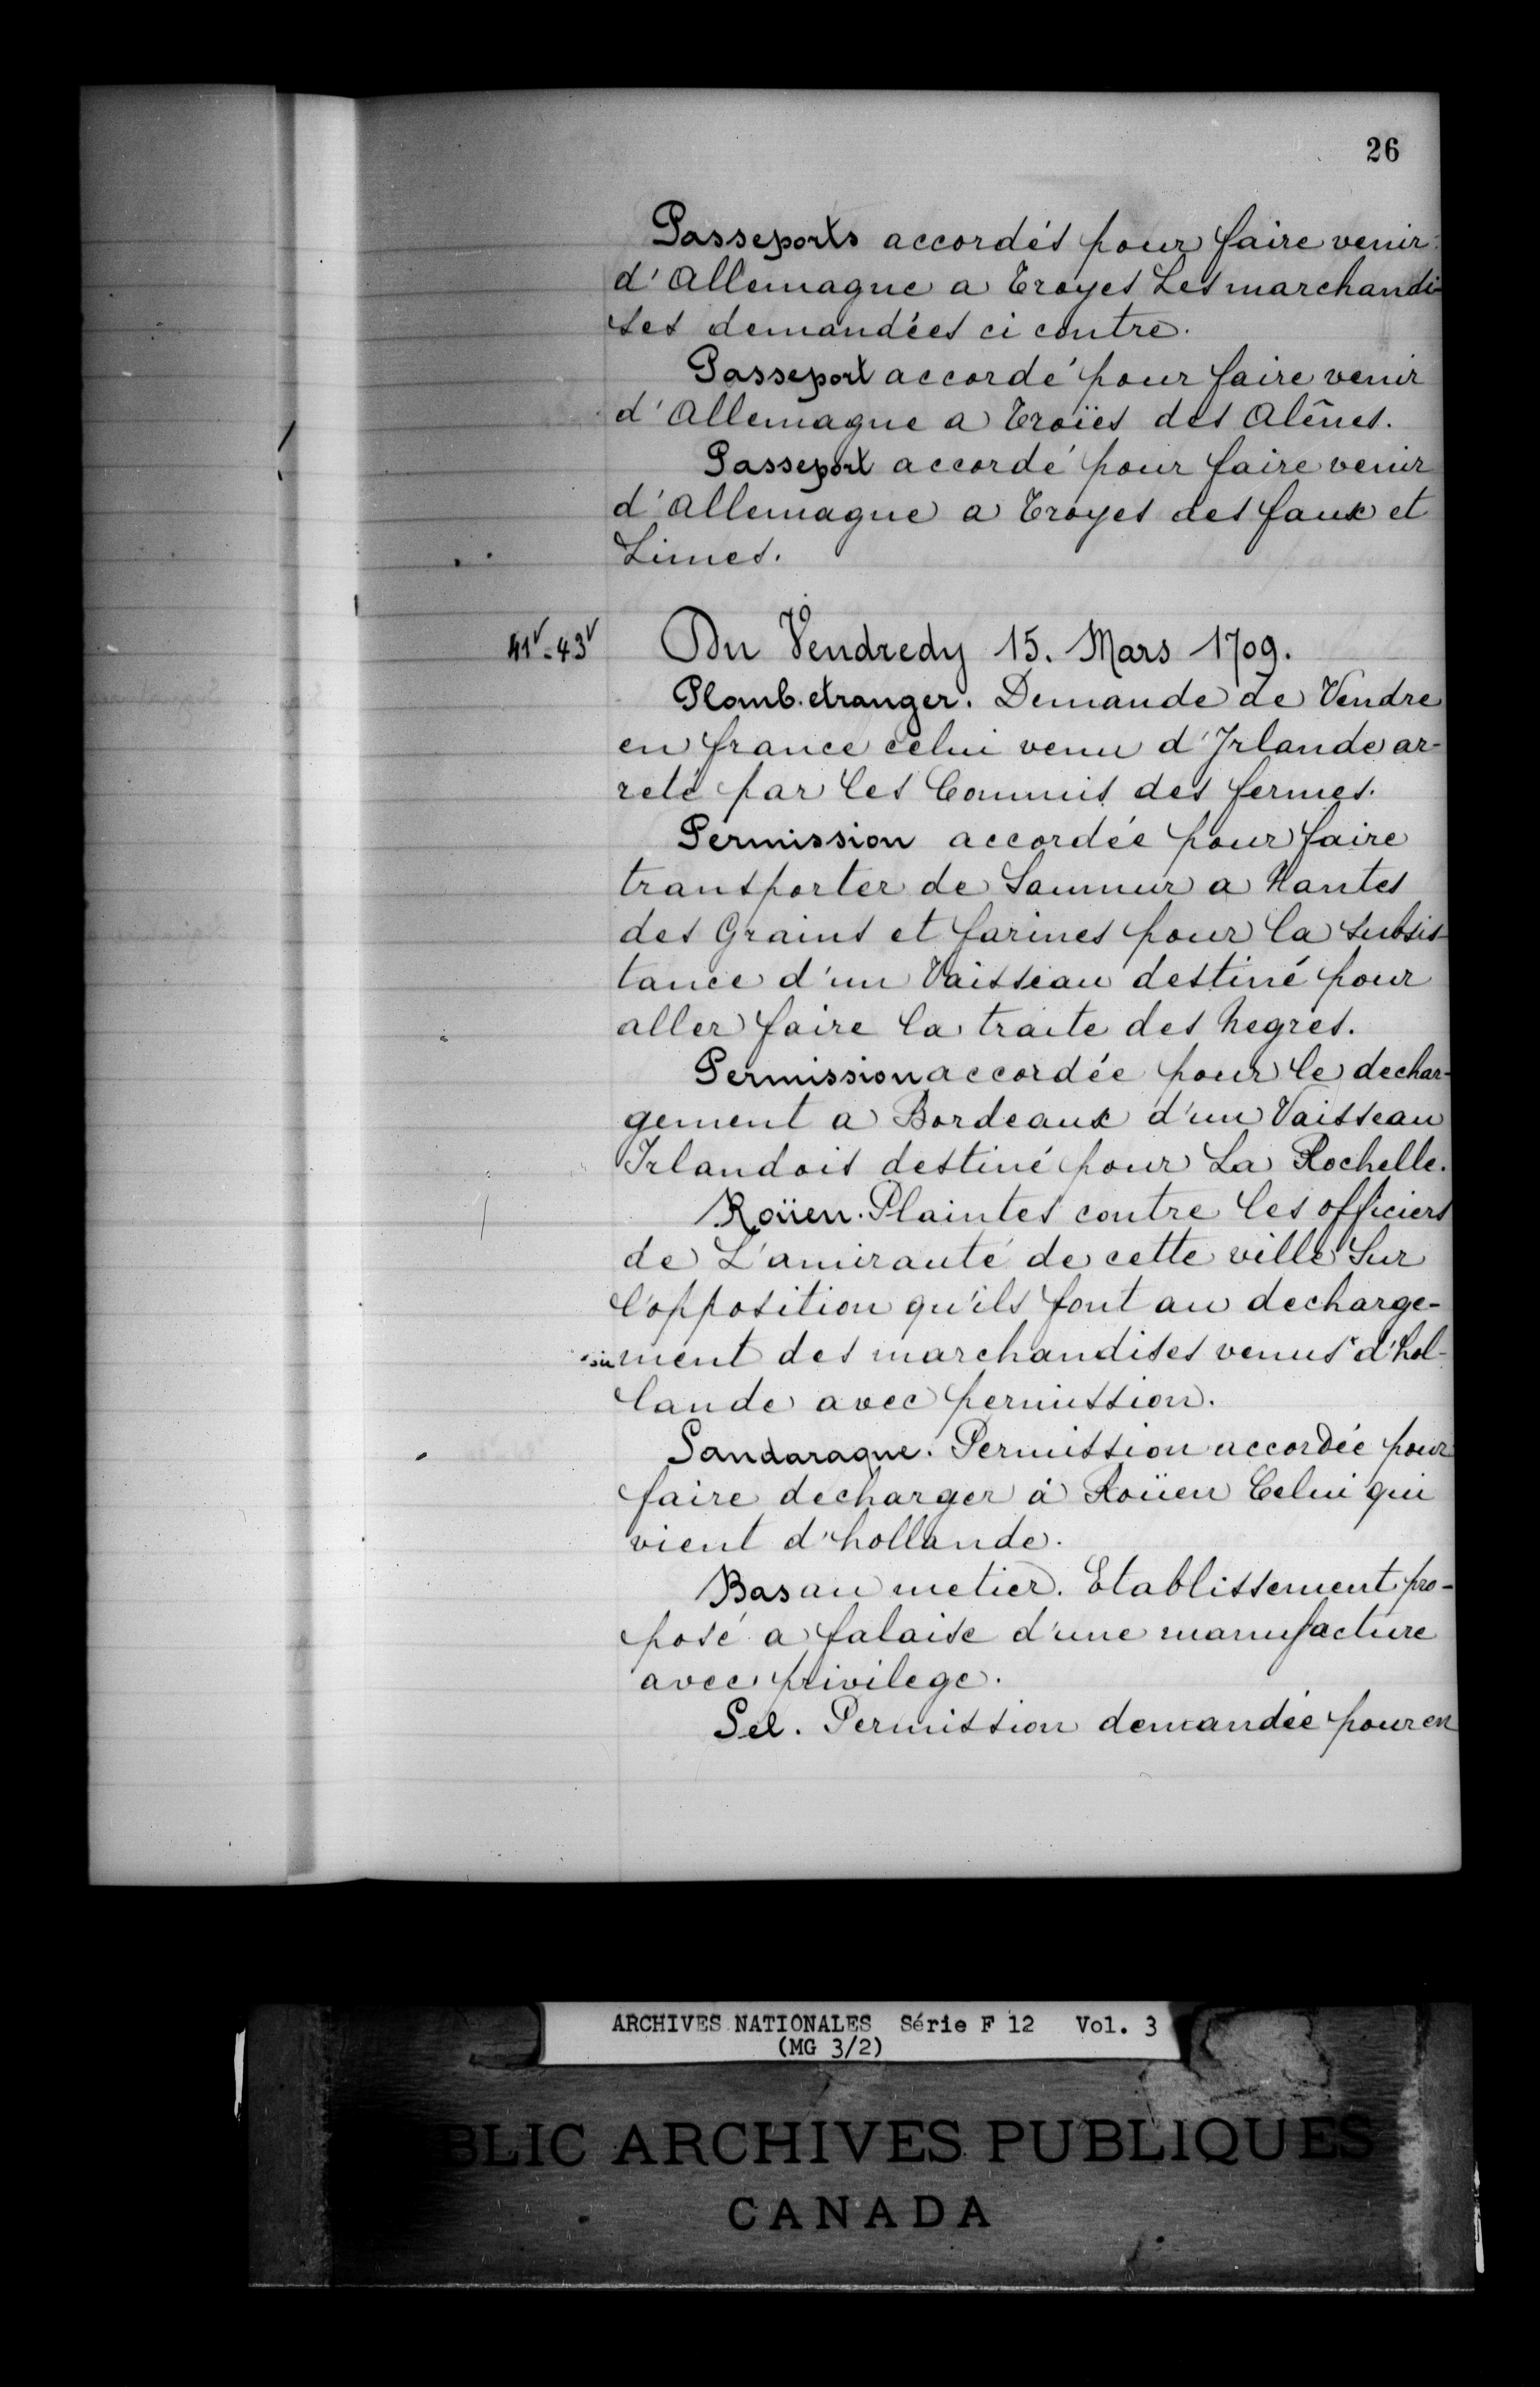 26
Passeports accordés pour faire venir
d'Allemagne a Troyes Les marchandi-
ses demandées ci contre.
Passeport accordé pour faire venir
d'Allemagne a Troïes des Alênes.
Passeport accordé pour faire venir
d'Allemagne a Troyes des faux et
Limes.
41v-43v
Du Vendredy 15. Mars 1709.
Plomb etranger. Demande de Vendre
en france celui venu d'Irlande ar-
reté par les Commis des fermes.
Permission accordée pour faire
transporter de Saumur a Nantes
des Grains et farines pour la subsis-
tance d'un Vaisseau destiné pour
aller faire la traite des Negres.
Permission accordée pour le dechar-
gement a Bordeaux d'un Vaisseau
Irlandois destiné pour La Rochelle.
Roüen. Plaintes contre les officiers
de L'amirauté de cette ville Sur
l'opposition qu'ils font au decharge-
ment des marchandises venus d'hol-
lande avec permission.
Sandaraque. Permission accordée pour
faire decharger à Roüen Celui qui
vient d'hollande.
Bas au metier. Etablissement pro-
posé a falaise d'une manufacture
avec privilege.
Sel. Permission demandée pour en
ARCHIVES NATIONALES Série F 12 Vol. 3
(MG 3/2)
BLIC ARCHIVES PUBLIQUES
CANADA